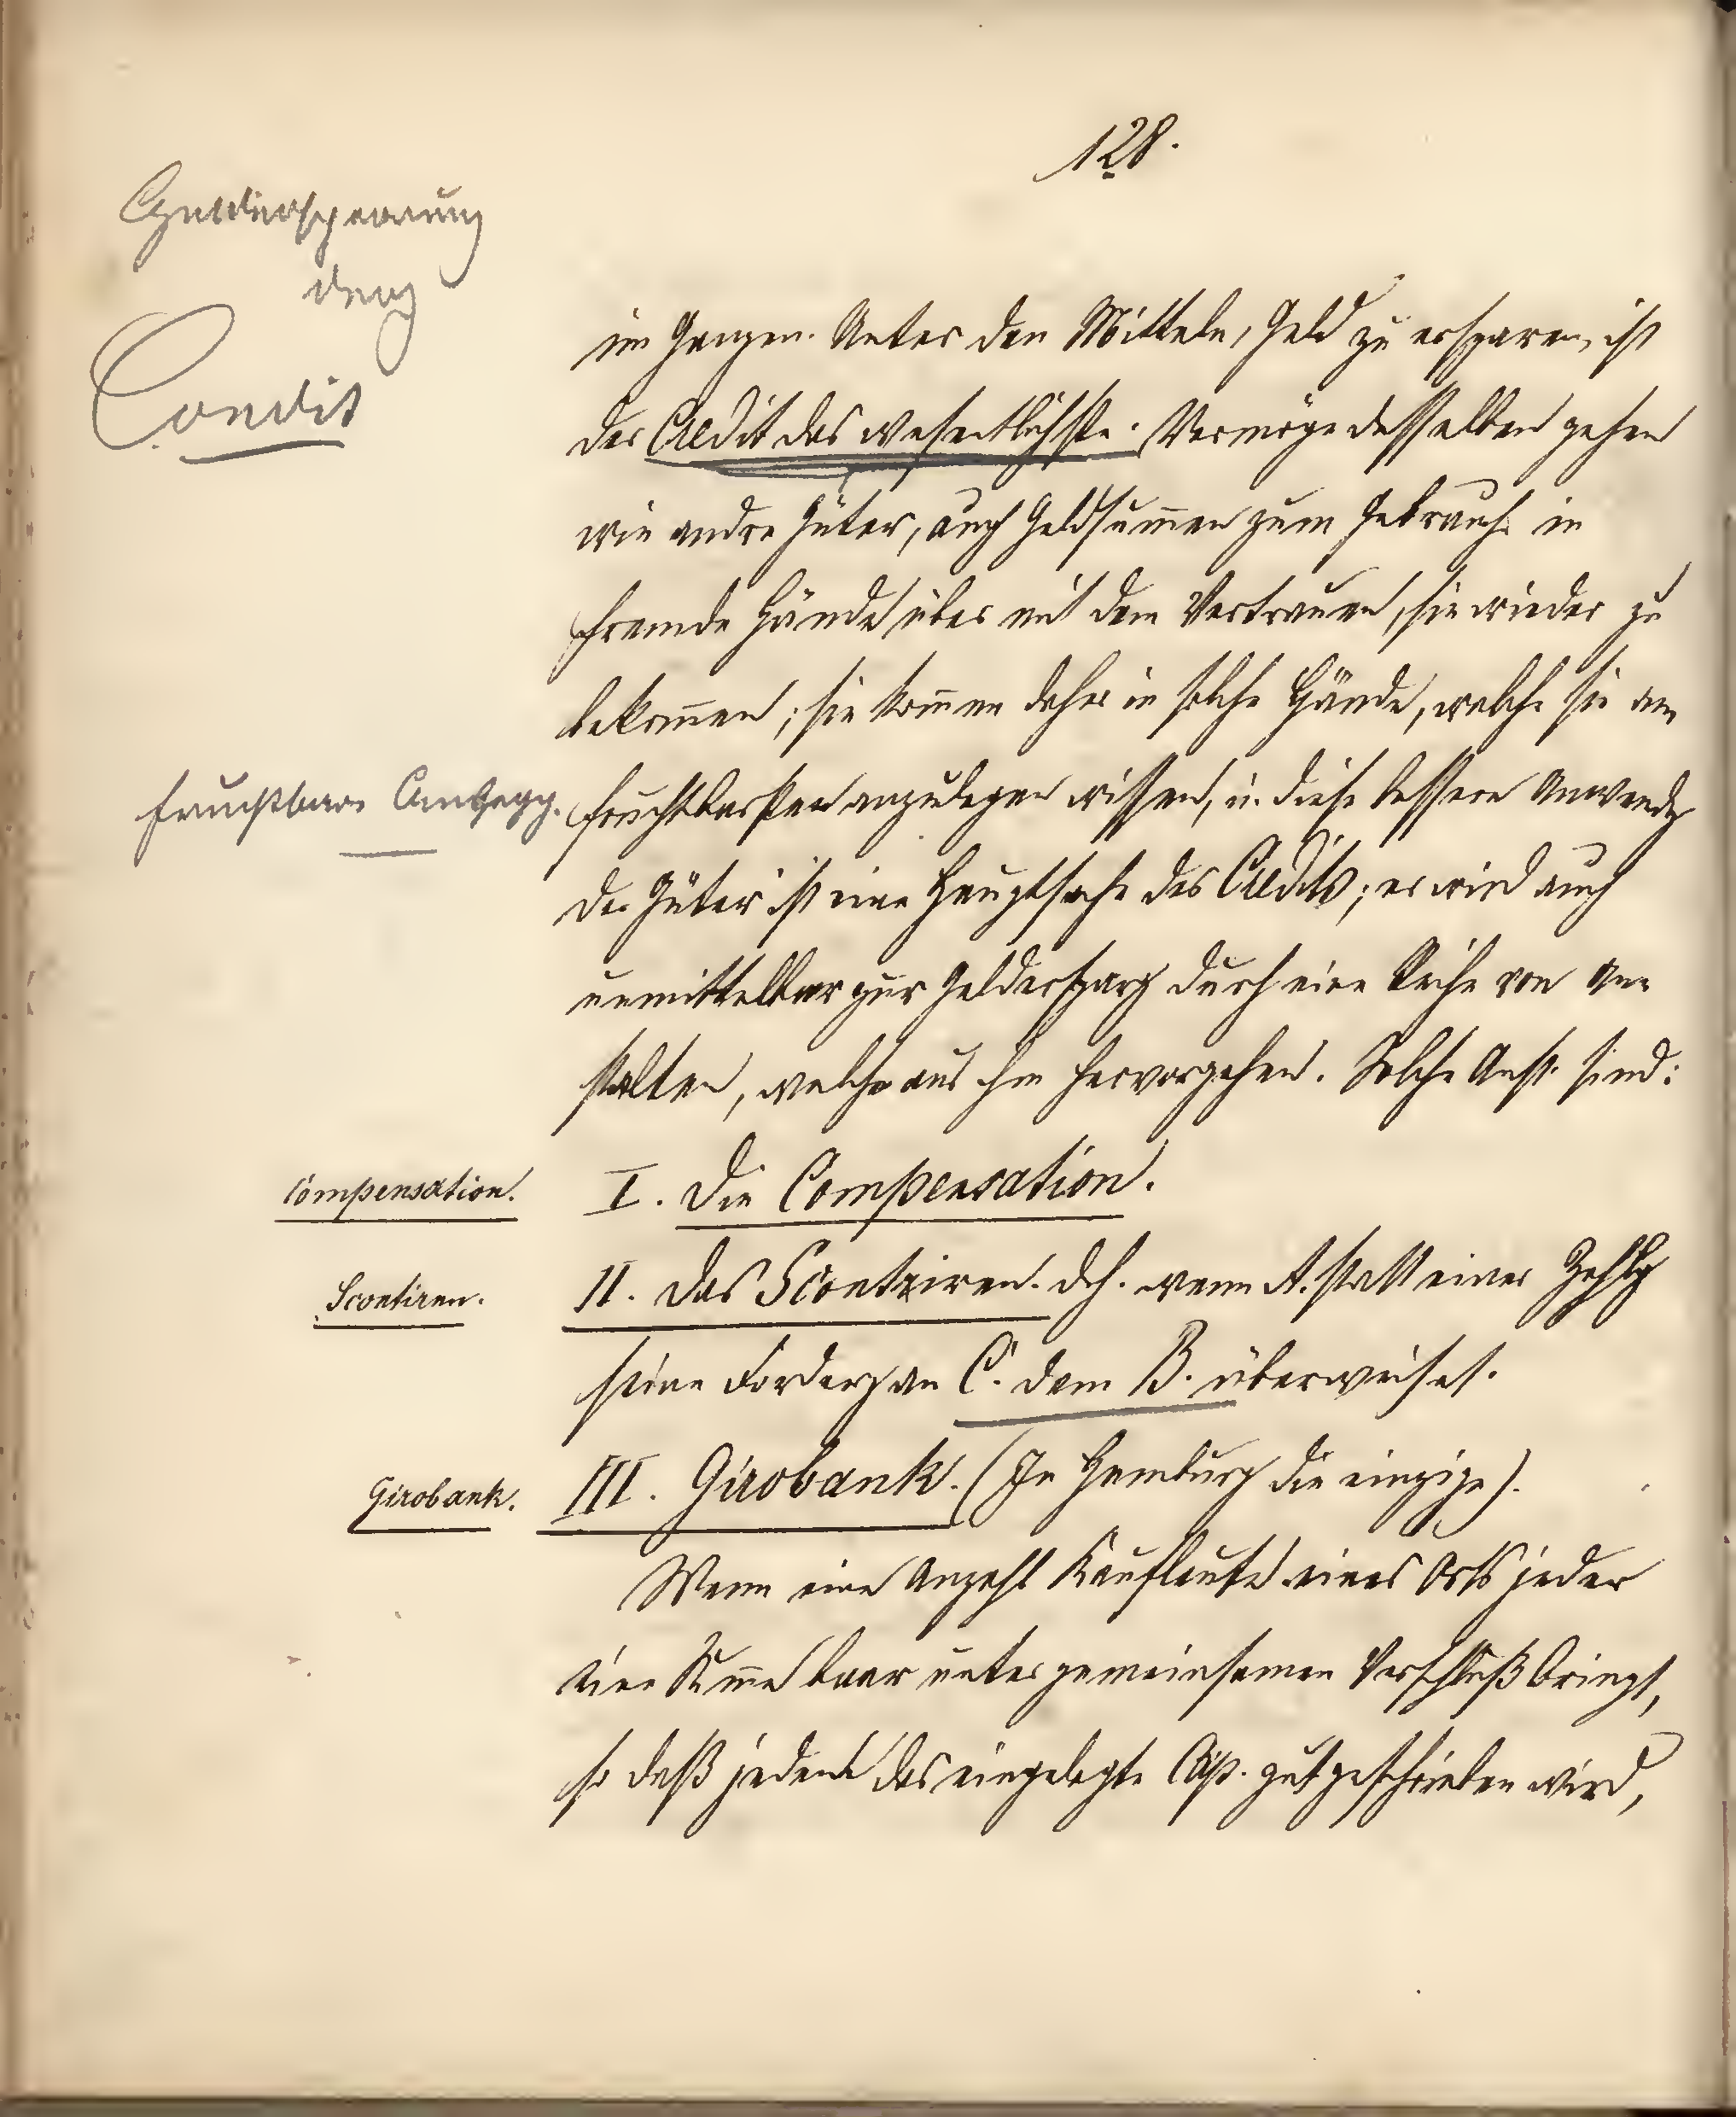 128.
Geldersparung
durch
Credit
im Ganzen. Unter den Mitteln, Geld zu ersparen, ist
der Credit das wesentlichste. Vermöge desselben gehen
wie andre Güter, auch Geldsum̅en zum Gebrauch in
fremde Hände über mit dem Vertrauen, sie wieder zu
bekom̅en; sie kom̅en daher in solche Hände, welche sie am
fruchtbare Anlegg.
fruchtbarsten anzulegen wissen, u. diese bessere Anwendg
der Güter ist eine Hauptsache des Credits; er wird auch
unmittelbar zur Geldersparg durch eine Reihe von An-
stalten, welche aus ihm hervorgehen. Solche Anst. sind:
Compensation.
I. Die Compensation.
Scontiren.
II. Das Scontriren. d.h. wenn A. statt einer Zahlg
seine Forderg an C. dem B. überweiset.
Girobank.
III. Girobank. (In Hamburg die einzige).
Wenn eine Anzahl Kaufleute eines Orts jeder
eine Sum̅e baar unter gemeinsamen Verschluß bringt,
so daß jedem das eingelegte Cap. gutgeschrieben wird,